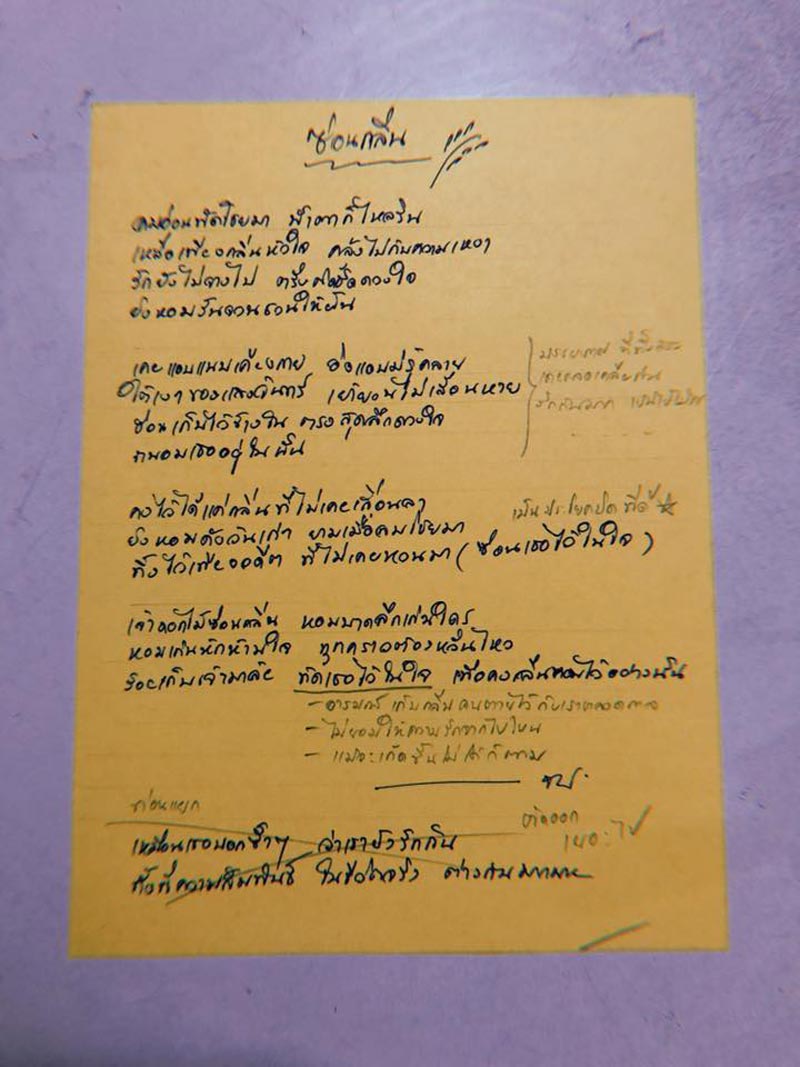 ซ่อนกลิ่น
ลมอ่อนพัดโชยมา น้ำตาก็ไหลริน
เหลือเพียงกลิ่นหัวใจ คลุ้งไปกับความเหงา
รักยังไม่จางไป ตรึงเธอดวงใจ
ยังหอมรัญจวนชวนให้ฝัน
เคยแอบแนบเคียงกาย
ใต้เงาของแสงจันทร์ เย้ายวนไม่เลือนหาย
ซ่อนเก็บไว้ข้างใน ตรงสุดลึกดวงใจ
ถนอมเธออยู่ในนั้น
คงไว้ได้แค่กลิ่น ที่ไม่เคยเลือนลา
เป็นประโยคปิดที่ดี
ยังหอมดังวันเก่า ยามเมื่อลมโชยมา
ทิ้งไว้เพียงอดีต ที่ไม่เคยหวนมา (ซ่อนเธอไว้ในใจ)
เจ้าดอกไม้ซ่อนกลิ่น หอมบาดลึกเกินใคร
หอมเกินหักห้ามใจ ทุกคราวต้องหลั่นไหว
ร้อยเก็บเจ้ามาลัย ทัดเธอไว้ในใจ เพื่อคงกลิ่นหอมไว้อย่างนั้น
- อารมณ์ เก็บกลิ่นคนตายไว้กับเราตลอดกาล
- ไม่ยอมให้ความรักจากไปไหน
- แม้จะเกิดขึ้นไม่ได้ก็ตาม
ท่อนแยก
ตัดออก
เหมือนเธอบอกซ้ำๆ ว่าเรายังรักกัน
ทั้งที่ความสัมพันธ์